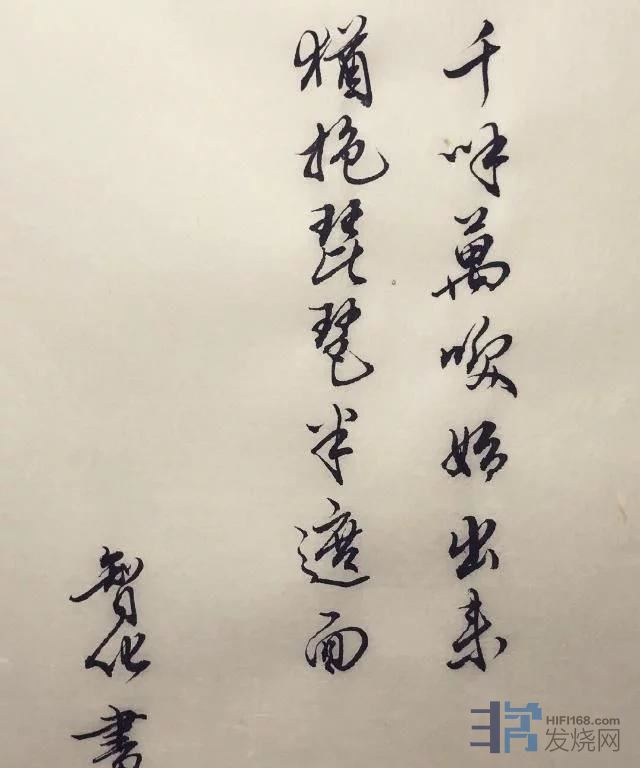 千呼萬喚始出来
猶抱琵琶半遮面
智化書
HIFI168.com
发烧网